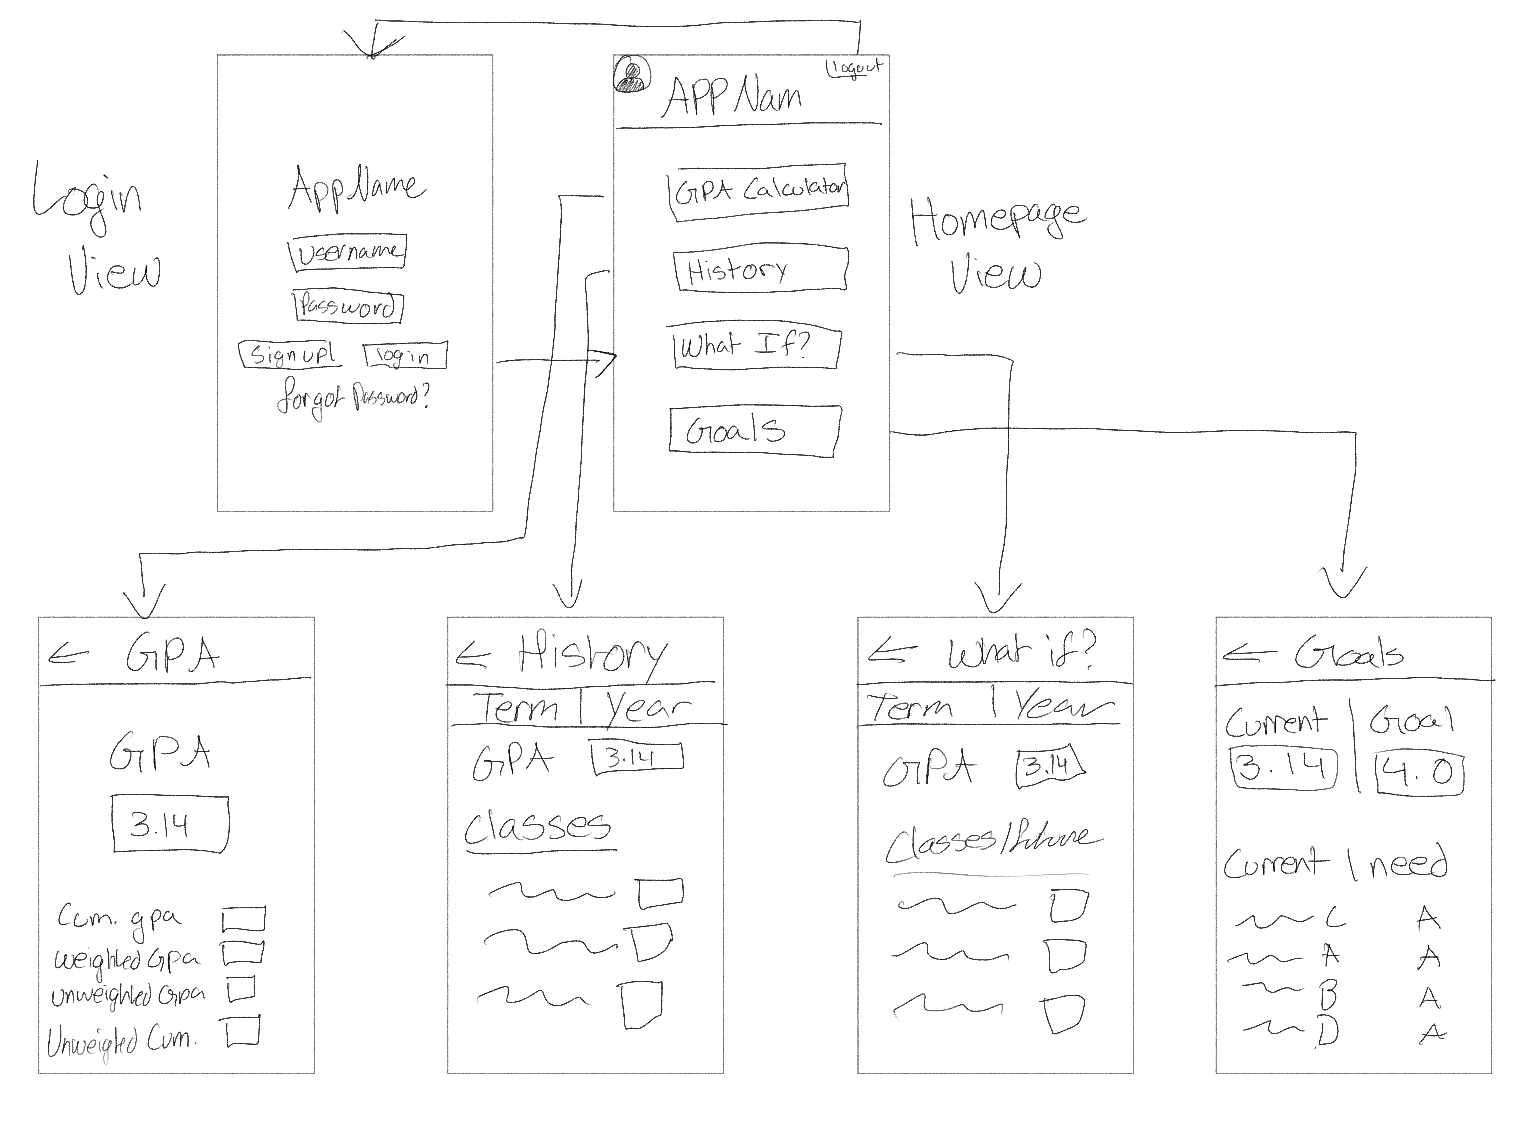 Login
View
AppName
Username
Password
Signup
login
forgot Password?
logout
APP Nam
GPA Calculator
History
What If?
Goals
Homepage
View
GPA
GPA
3.14
Cum. gpa
weighted Gpa
unweighted Gpa
Unweigted Cum.
History
Term | Year
GPA 3.14
Classes
What if?
Term | Year
GPA 3.14
Classes/future
Goals
Current | Goal
3.14 4.0
Current | need
C A
A A
B A
D A